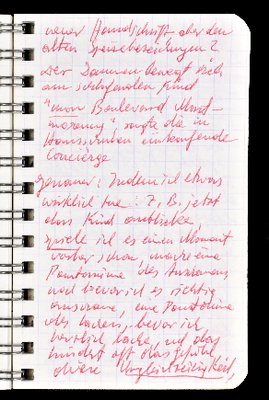 neuer Handschrift oder den
alten
Der Daumen bewegt sich
am schlafenden Kind
"mon Boulevard
sagte die in
einkaufende
Concierge
genauer: Indem ich etwas
wirklich tue: z.B. jetzt
das Kind anblicke,
spiele ich es einen Moment
vorher schon, mache eine
Pantomime des Anschauens
und bevor ich es richtig
anschaue, eine Pantomime
des Lachens, bevor ich
wirklich lache, und das
hindert oft das Gefühl
dieser Ungleichzeitigkeit,